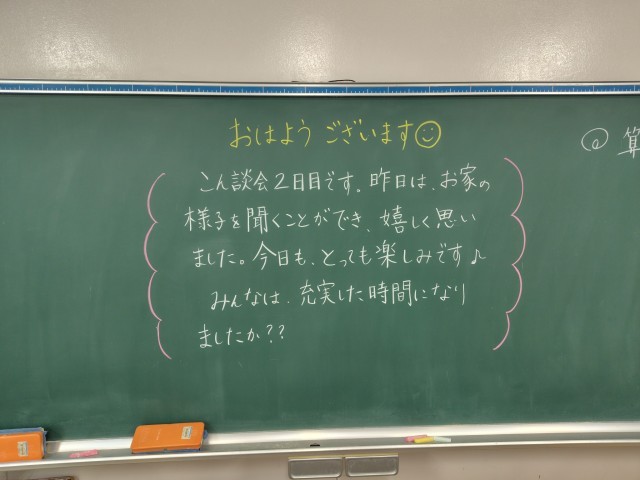 おはようございます
こん談会2日目です。昨日は、お家の
様子を聞くことができ、嬉しく思い
ました。今日も、とっても楽しみです♪
みんなは、充実した時間になり
ましたか??
@ 算